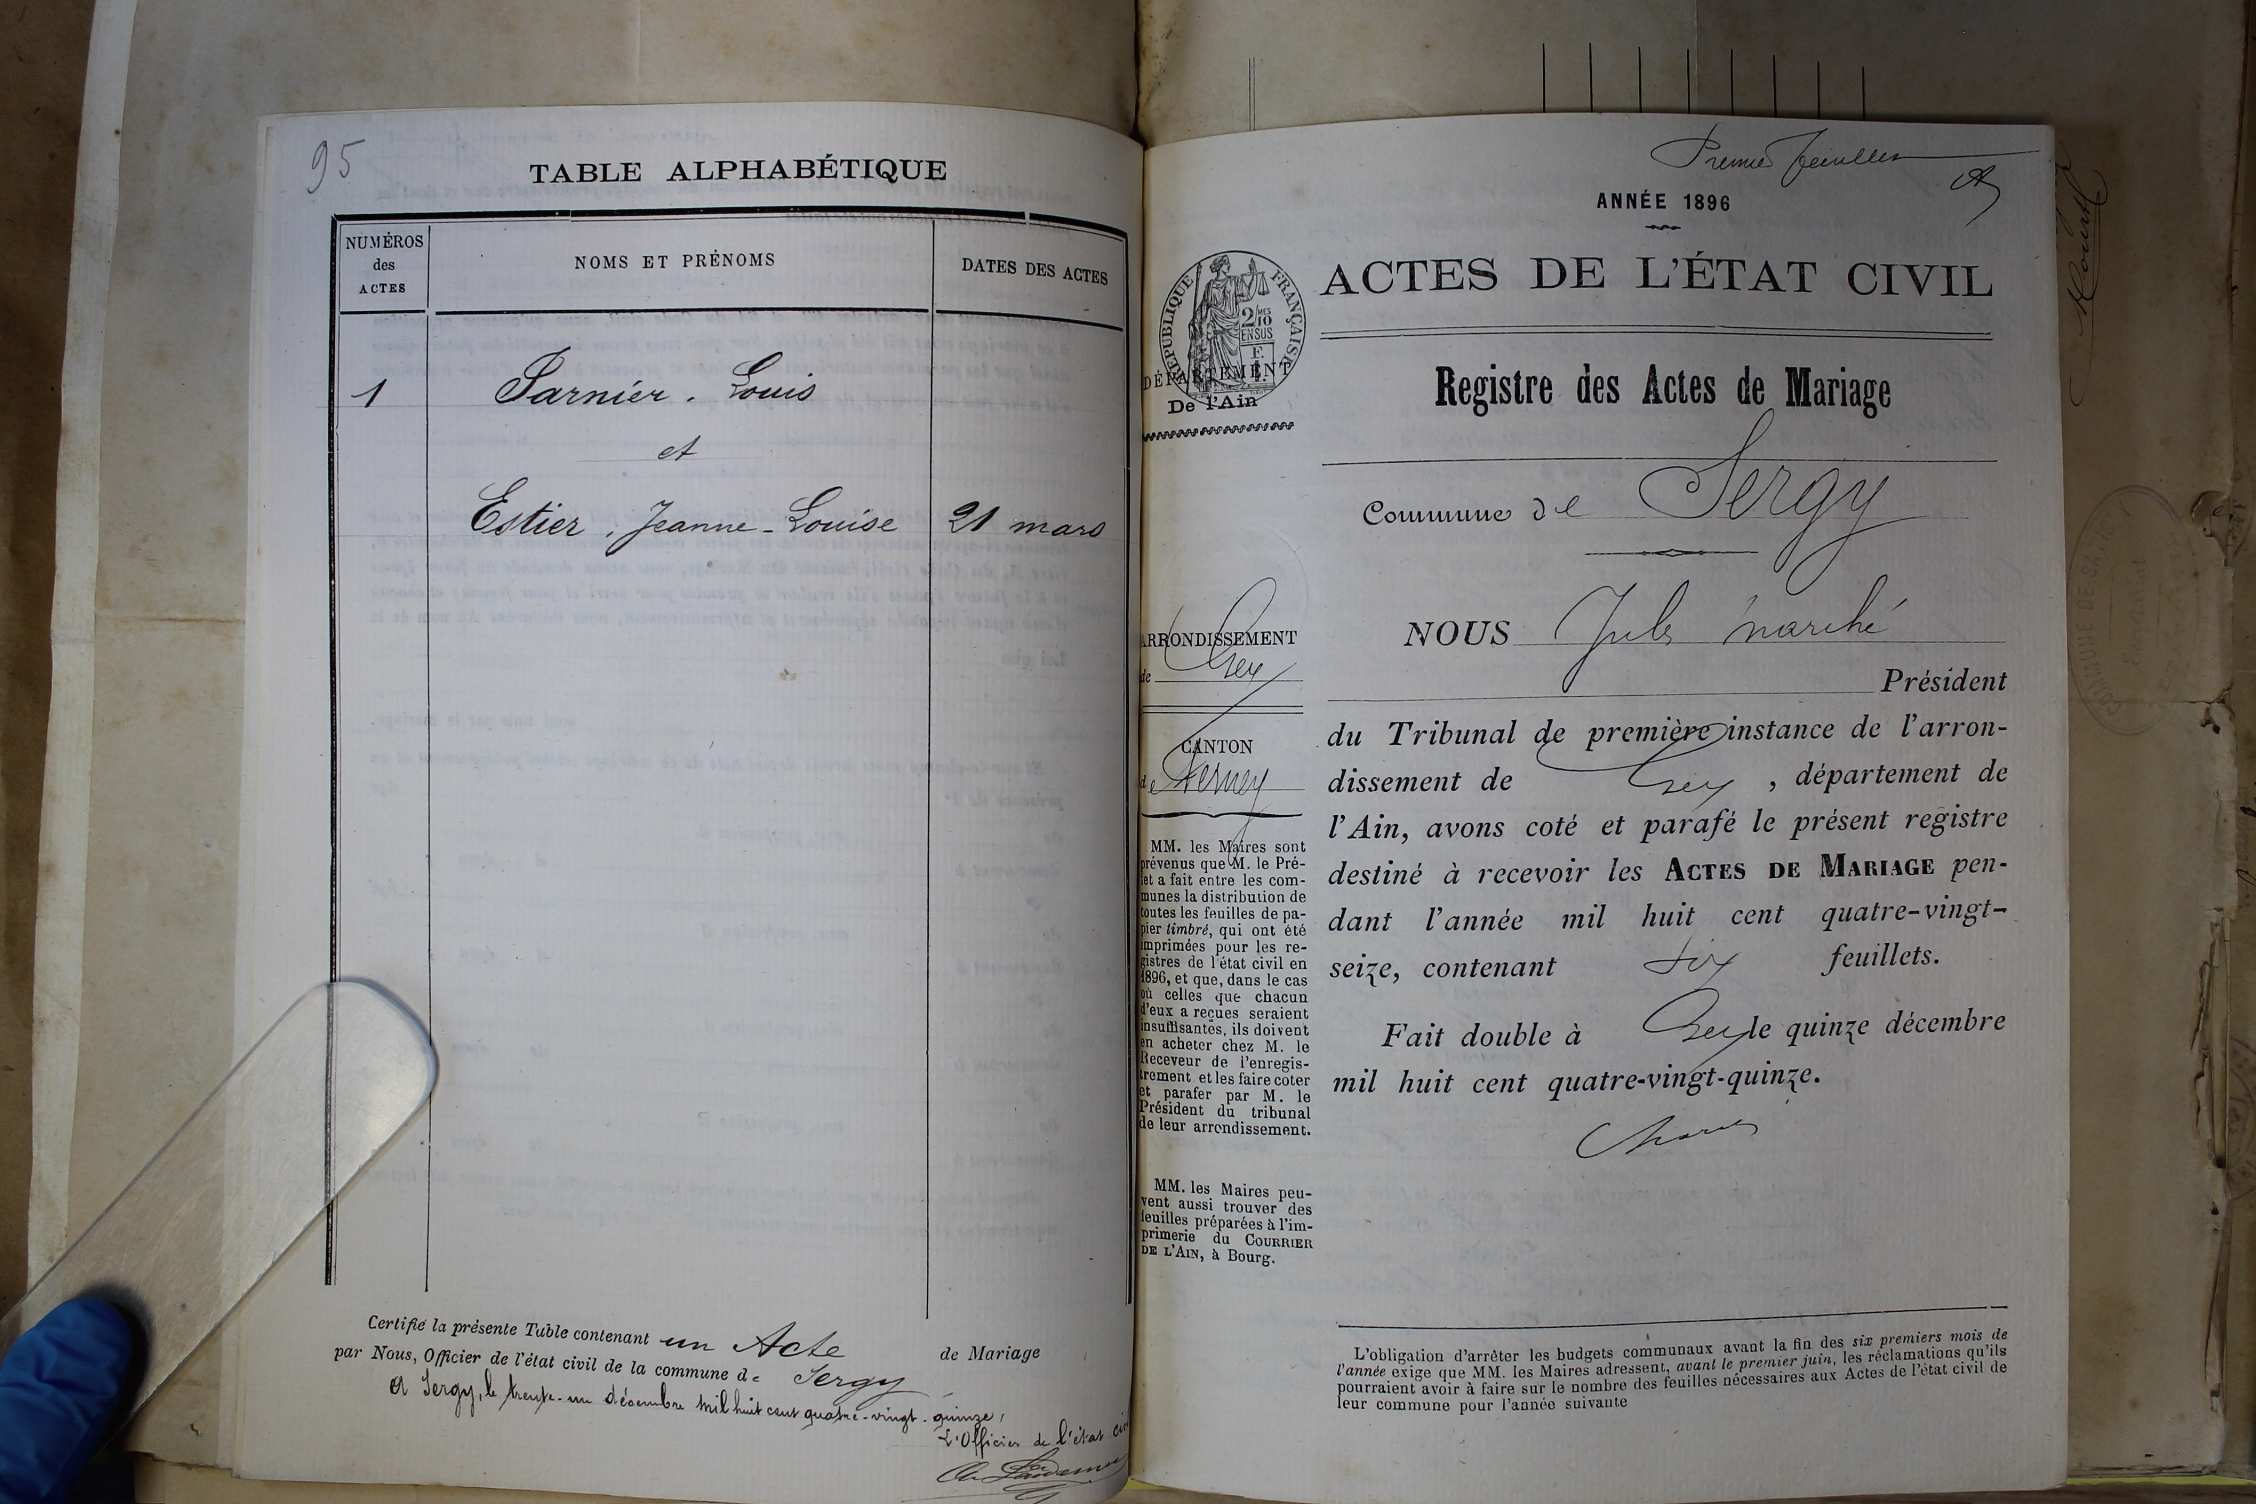 95
TABLE ALPHABÉTIQUE
NUMÉROS
des
ACTES
NOMS ET PRÉNOMS
DATES DES ACTES
1
Louis
et
Estier, Jeanne-Louise
21 mars
Certifié la présente Table contenant un Acte de Mariage
par Nous, Officier de l'état civil de la commune de Sergy
A Sergy, le trente-un décembre mil huit cent quatre-vingt-quinze,
L'Officier de l'état civ
Premier feuillet
ANNÉE 1896
ACTES DE L'ÉTAT CIVIL
RÉPUBLIQUE FRANÇAISE
2/10
EN SUS
DÉPARTEMENT
De l'Ain
Registre des Actes de Mariage
Commune de Sergy
ARRONDISSEMENT
de Gex
CANTON
de Ferney
MM. les Maires sont
prévenus que M. le Pré-
fet a fait entre les com-
munes la distribution de
toutes les feuilles de pa-
pier timbré, qui ont été
imprimées pour les re-
gistres de l'état civil en
1896, et que, dans le cas
où celles que chacun
d'eux a reçues seraient
insuffisantes, ils doivent
en acheter chez M. le
Receveur de l'enregis-
trement et les faire coter
et parafer par M. le
Président du tribunal
de leur arrondissement.
MM. les Maires peu-
vent aussi trouver des
feuilles préparées à l'im-
primerie du COURRIER
DE L'AIN, à Bourg.
NOUS Jules Marché
Président
du Tribunal de première instance de l'arron-
dissement de Gex, département de
l'Ain, avons coté et parafé le présent registre
destiné à recevoir les ACTES DE MARIAGE pen-
dant l'année mil huit cent quatre-vingt-
seize, contenant six feuillets.
Fait double à Gex le quinze décembre
mil huit cent quatre-vingt-quinze.
L'obligation d'arrêter les budgets communaux avant la fin des six premiers mois de
l'année exige que MM. les Maires adressent, avant le premier juin, les réclamations qu'ils
pourraient avoir à faire sur le nombre des feuilles nécessaires aux Actes de l'état civil de
leur commune pour l'année suivante